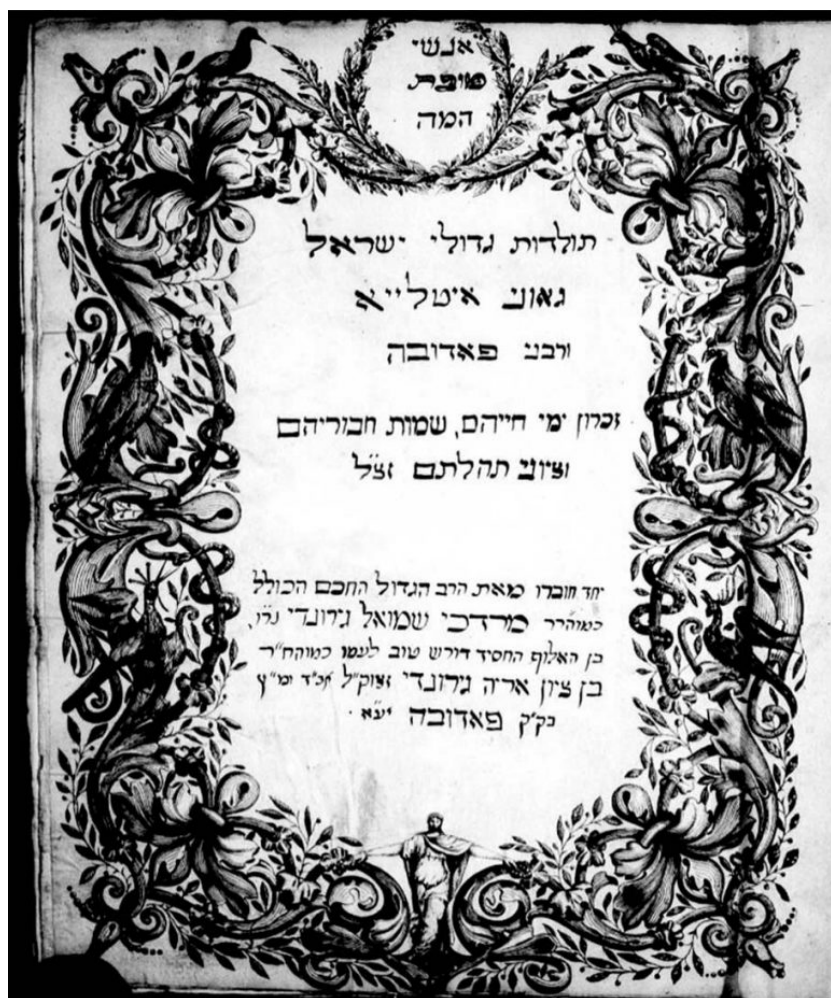 אנשי
שובת
המה
תולדות גדולי ישראל
גאוני איטלייא
ורבני פאדובה
זכרון ימי חייהם, שמות חבוריהם
וציוני תהלתם זצ״ל
יחד חוברו מאת הרב הגדול החכם הכולל
כמוהר״ר מרדכי שמואל גירונדי נר״ו,
בן האלוף החסיד דורש טוב לעמו כמוהח״ר
בן ציון אריה גירונדי זצוק״ל אב״ד ומ״ץ
בק״ק פאדובה יע״א